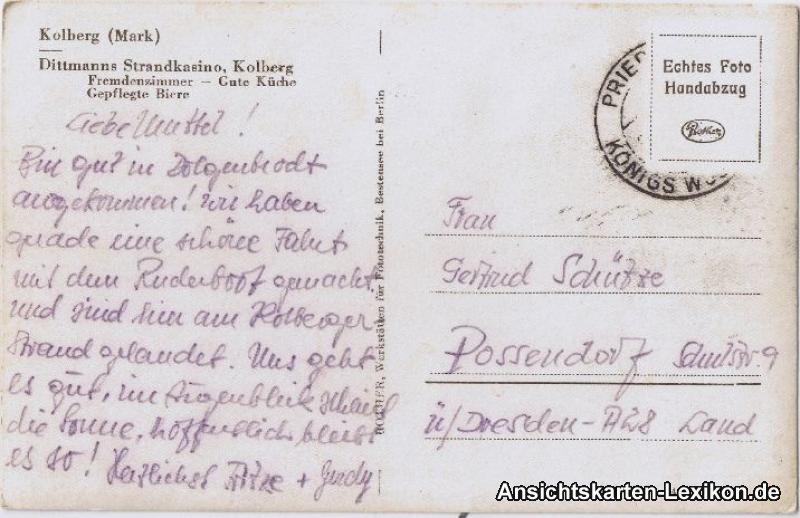 Kolberg (Mark)
Dittmanns Strandkasino, Kolberg
Fremdenzimmer – Gute Küche
Gepflegte Biere
Liebe Muttel!
Bin gut in Dolgenbrodt
angekommen! Wir haben
gerade eine schöne Fahrt
mit dem Ruderboot gemacht
und sind hier am Kolberger-
Strand gelandet. Uns geht
es gut, im Augenblick scheint
die Sonne, hoffentlich bleibt
es so! Herzlichst +
Werkstätten für Fototechnik, Bestensee bei Berlin
PRIE
KÖNIGS WUS
Echtes Foto
Handabzug
Frau
Gertrud Schütze
Possendorf Schulstr. 9
ü/Dresden-A28 Land
Ansichtskarten-Lexikon.de